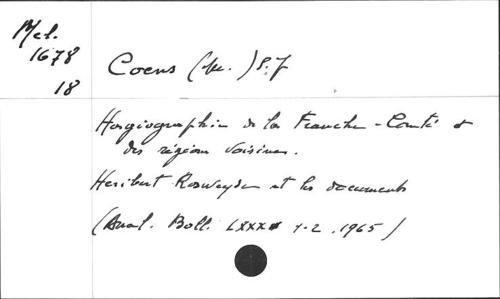 Mel.
1678
18
Coens (M.) S.J
Hagiographie de la Franche-Comté et
des région voisines.
Heribert Rosweyde et les documents
(Anal. Boll. LXXXIII 1-2, 1965)